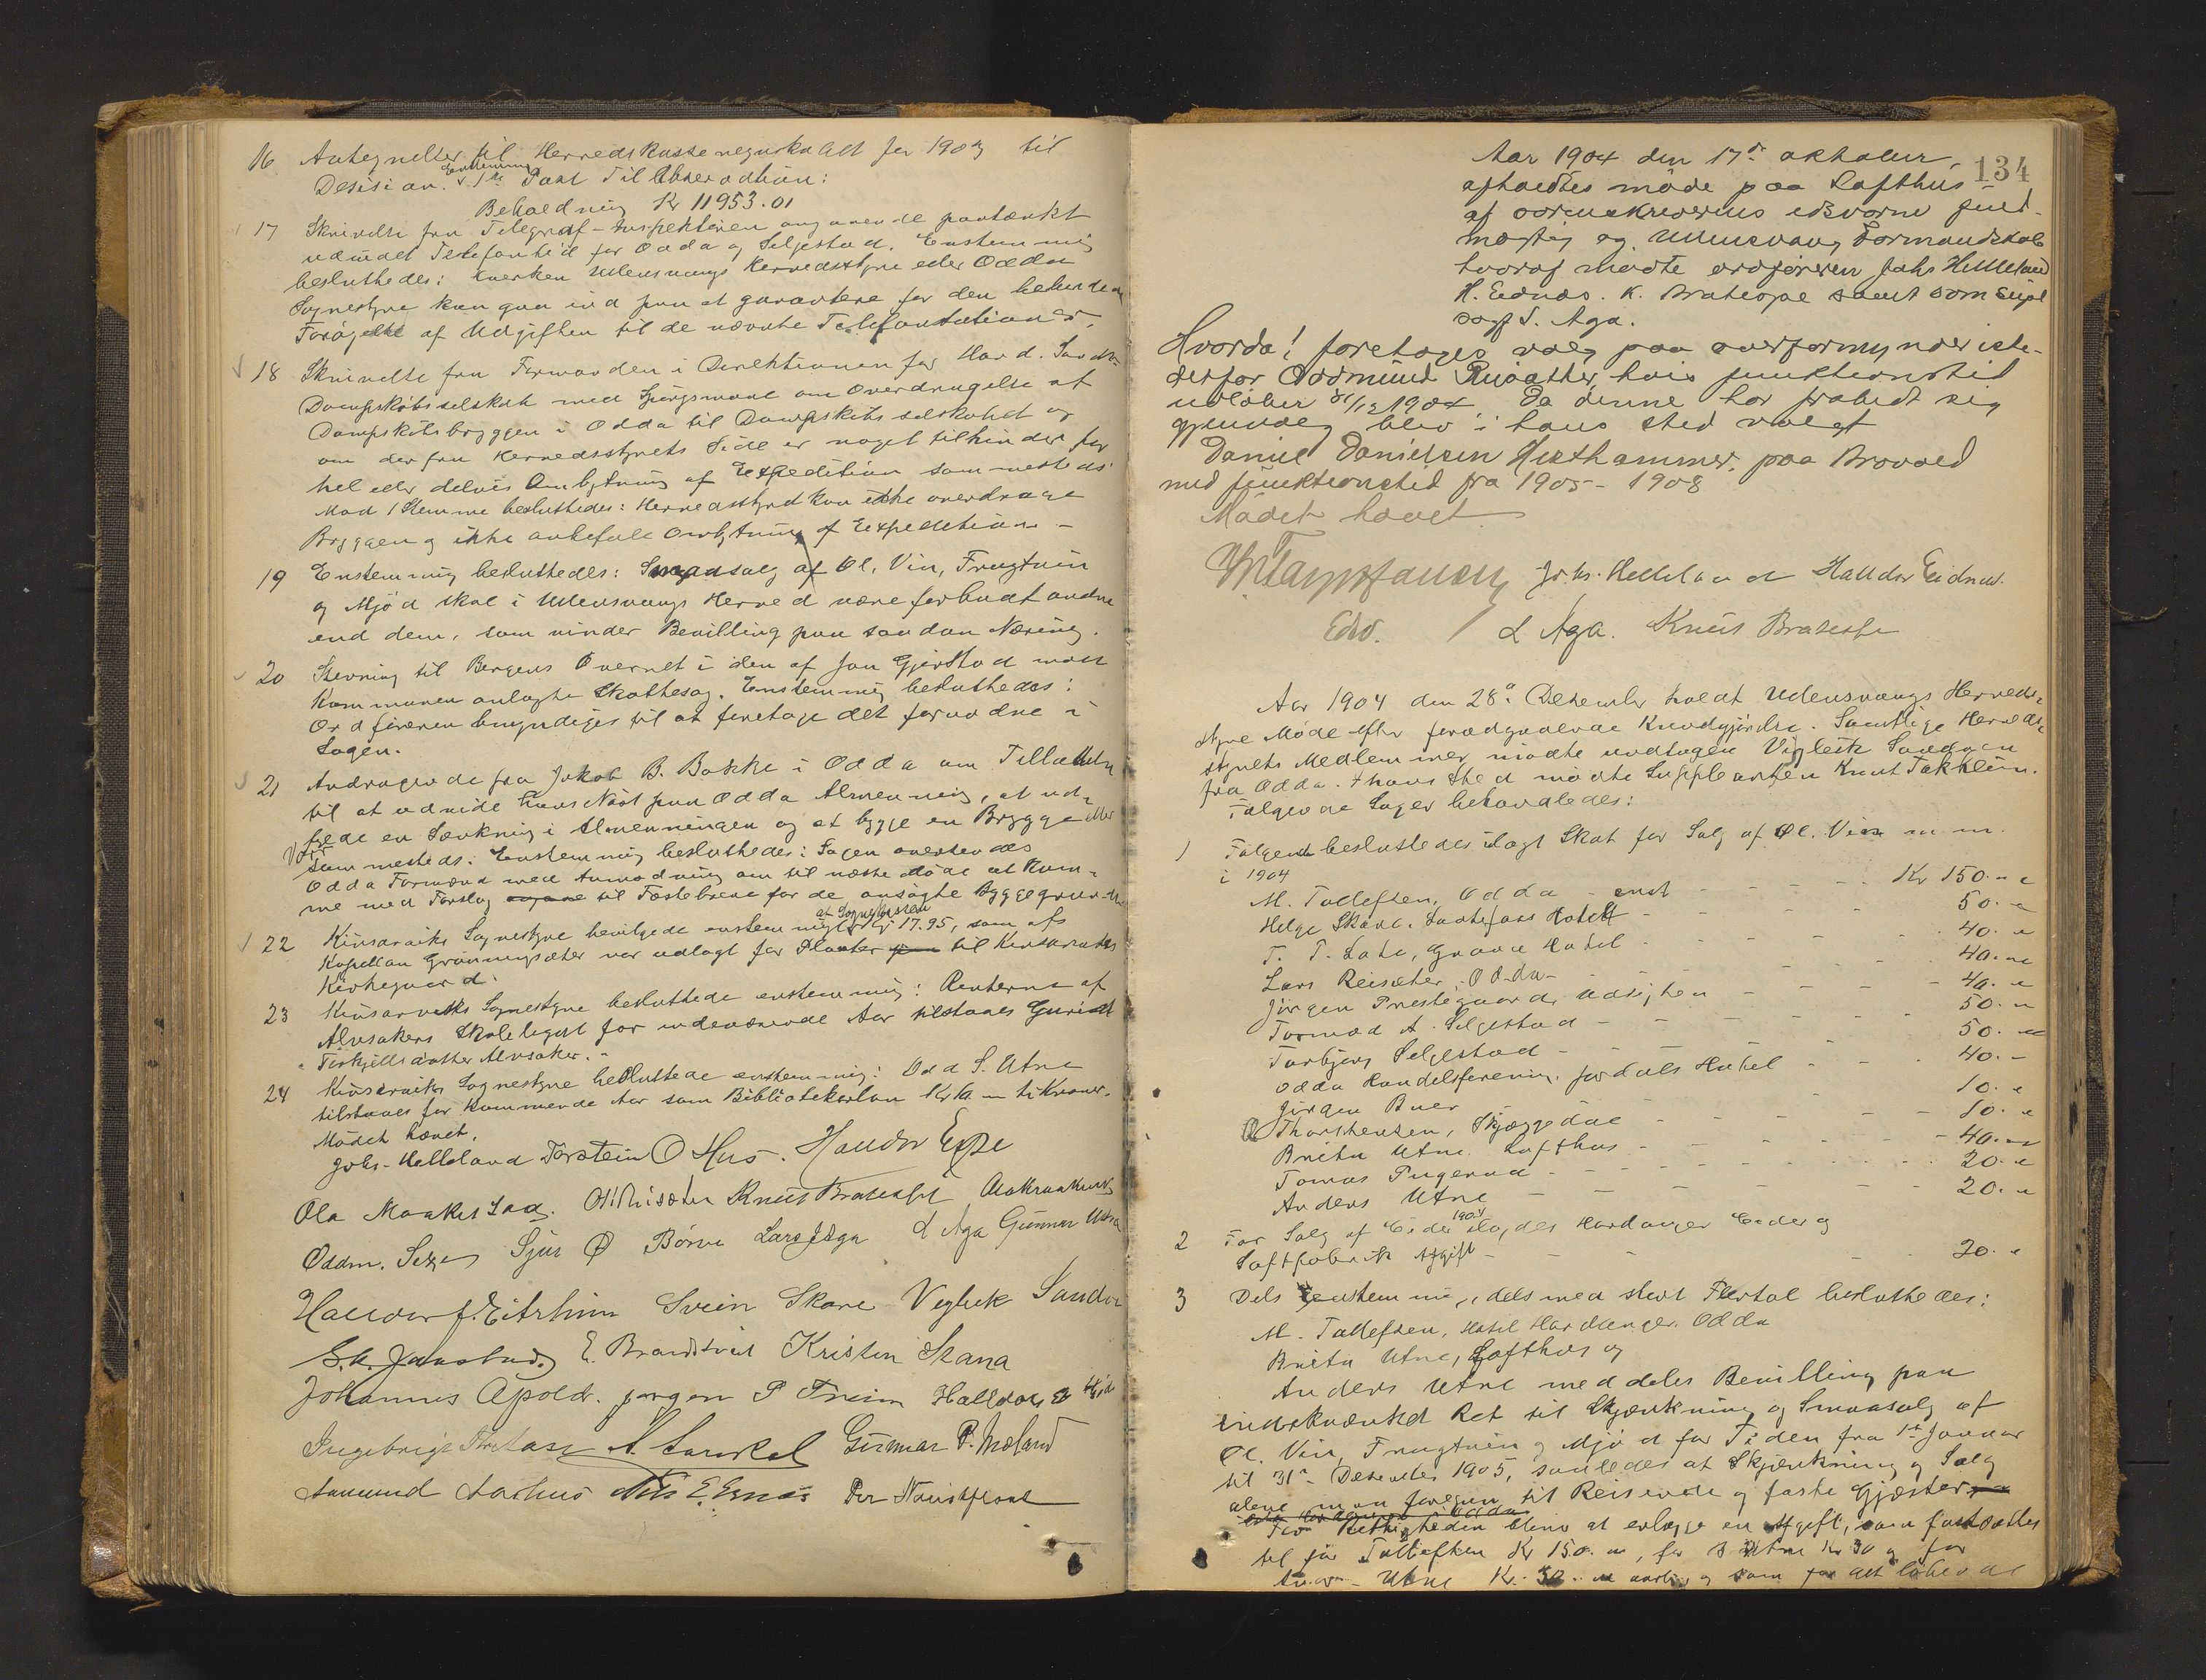 16. Antegnelser til Herredskasseregnskabet for 1903 til
Desision. Enstemmig 1ste Post Til Observation:
Beholdning Kr 11953.01
17 Skrivelse fra Telegraf-Inspektøren angaaende paatænkt
udvidet Telefontid for Odda og Seljestad. Enstemmig
besluttedes: hverken Ullensvangs Herredsstyre eller Odda
Sognestyre kan gaa ind paa at garantere for den
Forøgelse af Udgiften til de nævnte Telefonstationer.
18 Skrivelse fra Formanden i Direktionen for Hard. Søndh.
Dampskibsselskab med Spørgsmaal om Overdragelse af
Dampskibsbryggen i Odda til Dampskibsselskabet og
om der fra Herredsstyrets Side er noget til hinder for
hel eller delvis Ombytning af Expedition sammesteds.
Mod 1 Stemme besluttedes: Herredsstyret kan ikke overdrage
Bryggen og ikke anbefale Ombytning af Expedition -
19 Enstemmig besluttedes: Smaasalg af Øl, Vin, Frugtvin
og Mjød skal i Ullensvangs Herred være forbudt andre
end dem, som vinder Bevilling paa saadan Næring.
20 Stevning til Bergens Overret i den af Jon Gjerstad mod
Kommunen anlagte Skattesag. Enstemmig besluttedes:
Ordføreren bemyndiges til at foretage det fornødne i
Sagen.
21 Andragende fra Jakob B. Bakke i Odda om Tilladelse
til at udvide hans Nøst paa Odda Almenning, at ud-
føre en Senkning i Almenningen og at bygge en Brygge eller
Vor sammesteds. Enstemmig besluttedes: Sagen oversendes
Odda Formænd med Anmodning om til næste Møde at kom-
me med Forslag til Fæstebreve for de ansøgte Byggegrunde
22 Kinsarviks Sognestyre bevilgede enstemmig af Sognekassen Kr 17.95, som af
Kapellan Grønningsæter var udlagt for Planter til Kinsarviks
Kirkegaard.
23 Kinsarviks Sognestyre besluttede enstemmig: Renterne af
Alvsakers Skolelegat for indeværende Aar tilstaaes Gurid
Torkjellsdatter Alvsaker. -
24 Kinsarviks Sognestyre besluttede enstemmig: Odd S. Utne
tilstaaes for kommende Aar som Bibliotekarløn Kr 10 - ti Kroner.
Mødet hævet.
Johs. Helleland Torstein O Hus. Halldor Espe
Ola Maakestad. Knut Bratespe
Oddm. Sexe Sjur Ø Børve Lars J Aga L Aga Gunnar Utne
Halldor J. Eitrheim Svein Skare Vigleik Sandven
E. Brandstveit Kristen Skaна
Johannes Apold. Jørgen P Freim Halldor
Gunnar P. Mæland
Aamund Aarhus Nils E. Ernes Per Naustflaat
134
Aar 1904 den 17de oktober,
afholdtes møde paa Lofthus
af sorenskriverens edsvorne fuld-
mægtig og Ullensvang Formandskab
hvoraf mødte ordføreren Johs Helleland
H. Eidnæs. K. Bratespe samt som Supl
L. Aga.
Hvorda! foretoges valg paa overformynder iste-
detfor Oddmund Reisæther, hvis funktionstid
udløber 31/12 1904. Da denne har frabedt sig
gjenvalg blev i hans sted valgt
Daniel Danielsen Hesthammer, paa Bravold
med funktionstid fra 1905 - 1908
Mødet hævet
Johs. Helleland Halldor Eidnæs.
Edsv. L Aga. Knut Bratespe
Aar 1904 den 28de Desember holdt Ullensvangs Herreds-
styre Møde efter foregaaende Kundgjørelse. Samtlige Herreds-
styrets Medlemmer mødte undtagen Vigleik Sandven
fra Odda. I hans Sted mødte Suppleanten Knut Tokheim.
Følgende Sager behandledes:
1 Følgende besluttedes ilagt Skat for Salg af Øl, Vin m m.
i 1904
M. Tollefsen, Odda - Kr 150. "
Helge Skare, Laatefoss Hotel - 50. "
T. T. Lote, Grand Hotel - 40. "
Lars Reisæter, Odda - 40. "
Jørgen Prestegaard, Udsigten - 40. "
Tormod A. Seljestad - 50. "
Torbjørg Seljestad - 50. "
Odda Handelsforening, Jordals Hotel - 40. -
Jørgen Buer - 10. "
O Thorstensen, Skjæggedal - 10. "
Brita Utne Lofthus - 40. "
Tomas Pugerud - 20. "
Anders Utne - 20. "
2 For Salg af Cider 1904 ilagdes Hardanger Cider og
Saftfabrik Afgift - 20. "
3 Dels Enstemmig, dels med stort Flertal besluttedes:
M. Tollefsen, Hotel Hardanger, Odda
Brita Utne, Lofthus og
Anders Utne meddeles Bevilling paa
indskrænket Ret til Skjænkning og Smaasalg af
Øl, Vin, Frugtvin og Mjød for Tiden fra 1ste Januar
til 31te Desember 1905, saaledes at Skjænkning og Salg
alene maa foregaa til Reisende og faste Gjæster
For Rettigheden bliver at erlægge en Afgift, som fastsættes
til for Tollefsen Kr 150. ", for B Utne Kr 30 og for
Utne Kr. 30. " aarlig og som for det løbende